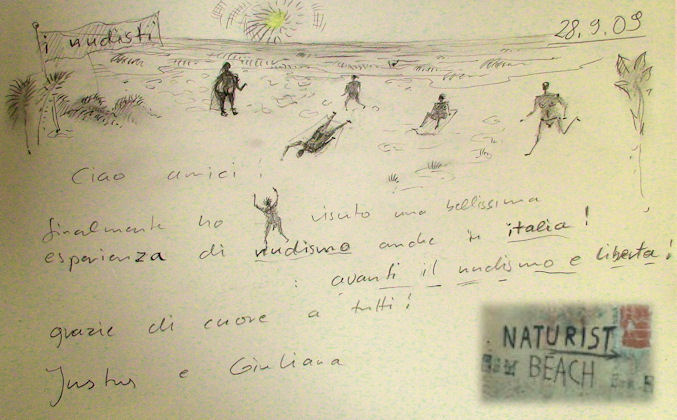 i nudisti
28.9.09
Ciao amici!
finalmente ho vissuto una bellissima
esperienza di nudismo anche in italia!
: avanti il nudismo e liberta!
grazie di cuore a tutti!
Justus e Giuliana
NATURIST
BEACH